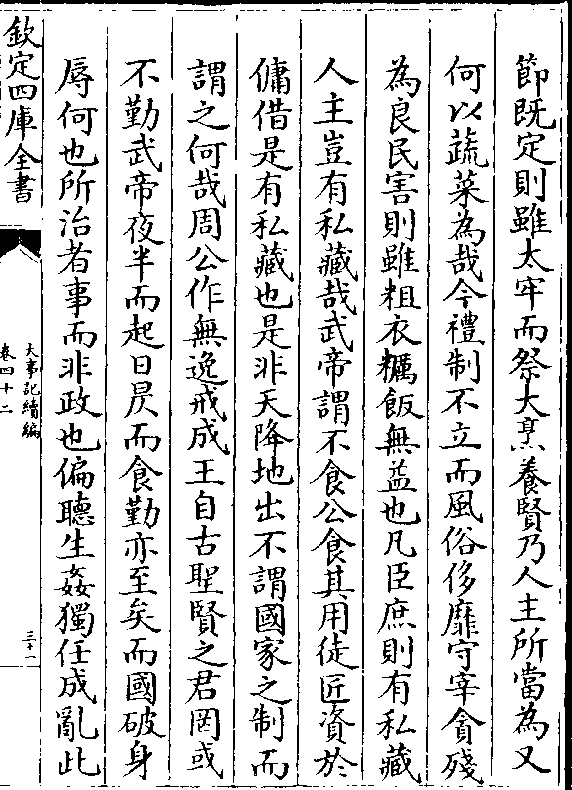 節既定則雖太牢而祭大烹養賢乃人主所當為又
何以蔬菜為哉今禮制不立而風俗侈靡守宰貪殘
為良民害則雖粗衣糲飯無益也凡臣庶則有私藏
人主豈有私藏哉武帝謂不食公食其用徒匠資於
傭借是有私藏也是非天降地出不謂國家之制而
謂之何哉周公作無逸戒成王自古聖賢之君罔或
不勤武帝夜半而起日昃而食勤亦至矣而國破身
辱何也所治者事而非政也偏聽生姦獨任成亂此
欽定四庫全書
大事記續編
卷四十二
三十一